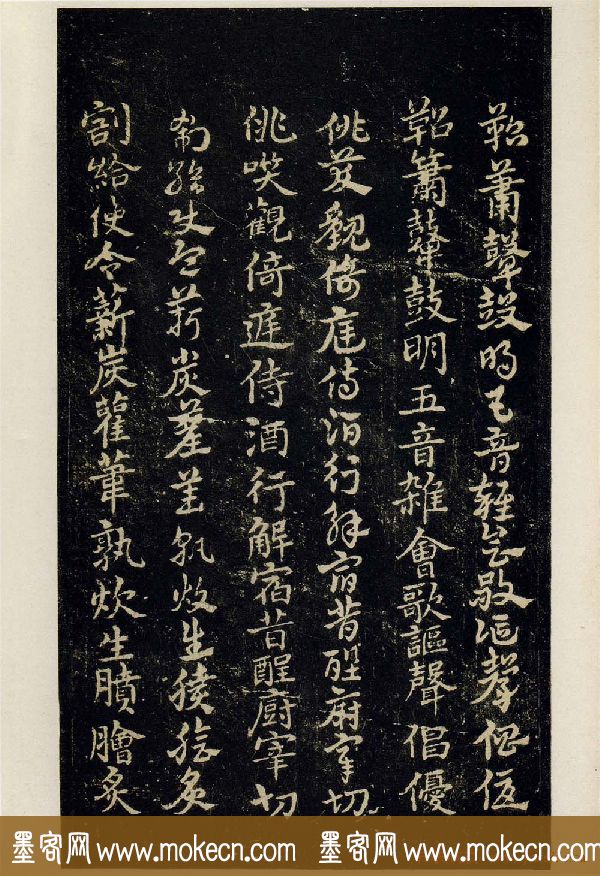 鞀簫鼙鼓鳴五音雜會歌謳聲倡優
鞀簫鼙鼓明五音雜會歌謳聲倡優
佻笑觀倚庭侍酒行解宿昔酲廚宰切
佻咲觀倚庭侍酒行解宿昔酲廚宰切
割給使令薪炭雚葦孰炊生膹膾炙
割給使令薪炭雚葦孰炊生膹膾炙
墨客网 www.mokecn.com 墨客网 www.mokecn.com